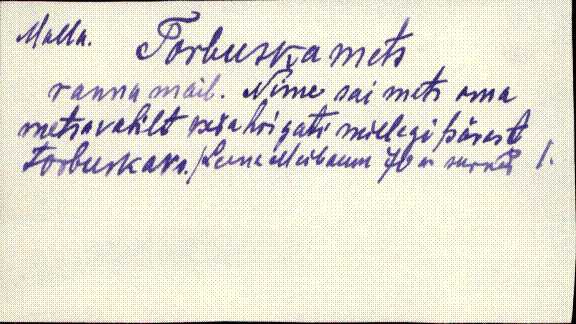 Malla. Torbuska mets
ranna mail. Nime sai mets oma
metsavahilt keda hüüti millegi pärast
Torbuskaks. / Leena Meibaum 70 a. surnud /.